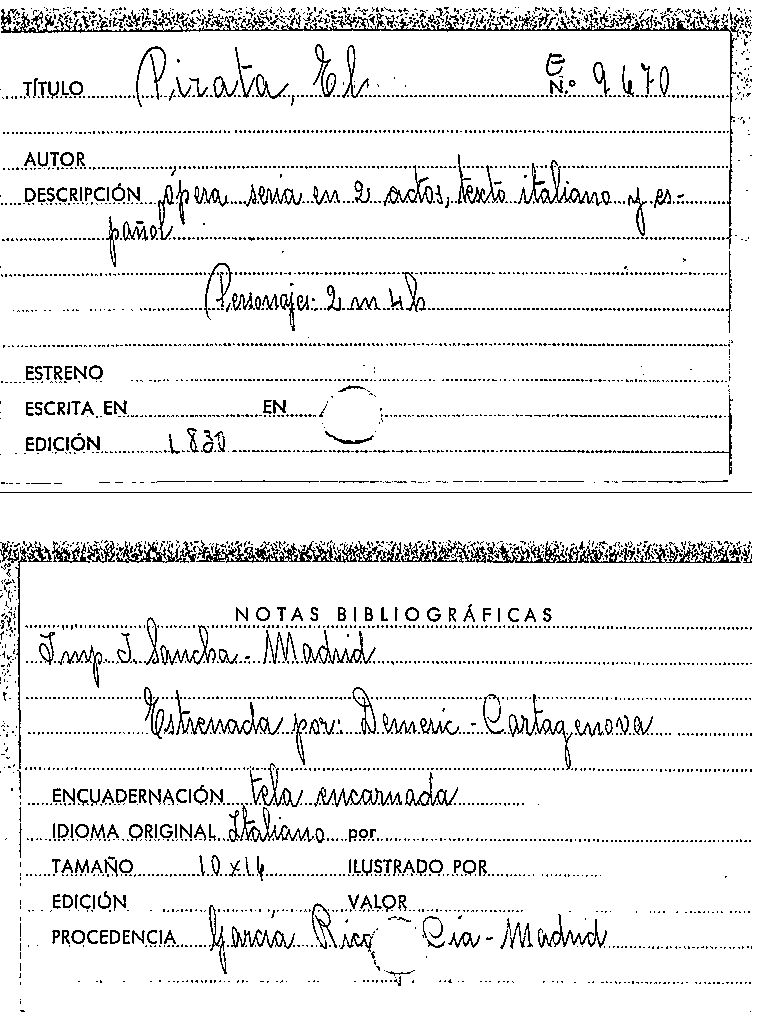 TÍTULO Pirata, El E N.º 9670
AUTOR
DESCRIPCIÓN ópera seria en 2 actos, texto italiano y es-
pañol
Personajes: 2 m 4 h
ESTRENO
ESCRITA EN EN
EDICIÓN 1830
NOTAS BIBLIOGRÁFICAS
Imp I. Sancha - Madrid
Estrenada por: Demeric - Cartagenova
ENCUADERNACIÓN tela encarnada
IDIOMA ORIGINAL Italiano por
TAMAÑO 10 x 14 ILUSTRADO POR
EDICIÓN VALOR
PROCEDENCIA García Rico Cía - Madrid